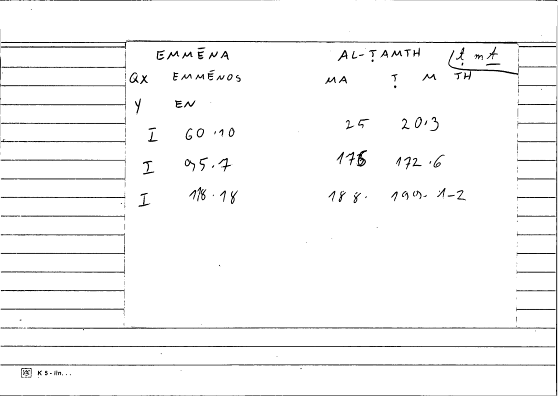 EMMĒNA AL-ṬAMTH ṭ m ṯ
QX EMMĒNOS MA Ṭ M TH
Y EN
I 60.10 25 20.3
I 95.7 176 172.6
I 118.18 188. 199. 1-2
K 5 - lin. . .